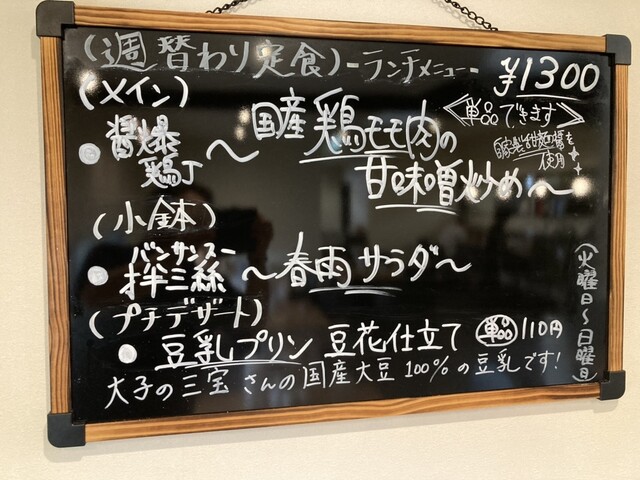 (週替わり定食)-ランチメニュー- ¥1300
(メイン)
醤爆鶏丁～国産鶏モモ肉の甘味噌炒め～
<単品できます>
自家製甜麺醤を使用
(小鉢)
バンサンスー
拌三絲～春雨サラダ～
(プチデザート)
豆乳プリン 豆花仕立て 単品110円
大子の三宝さんの国産大豆100%の豆乳です!
(火曜日～日曜日)